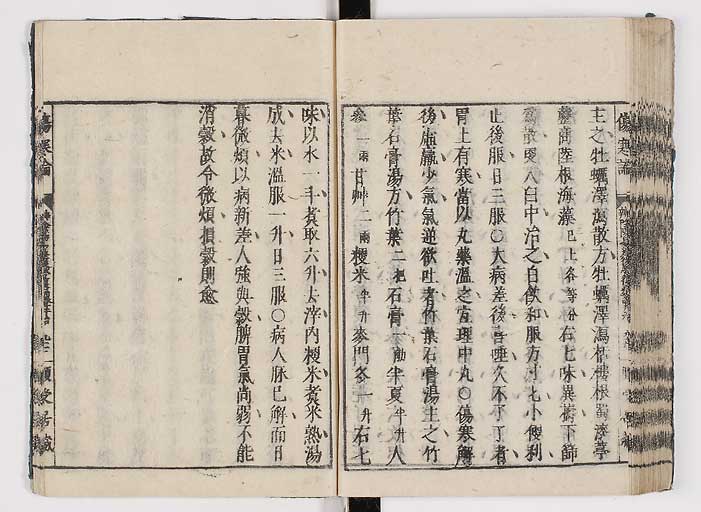 主之牡蠣澤瀉散方牡蠣澤瀉栝樓根蜀漆葶
藶商陸根海藻已上各等分右七味異擣下篩
爲散更入臼中治之白飲和服方寸匕小便利
止後服日三服○大病差後喜唾久不了了者
胃上有寒當以丸藥溫之宜理中丸○傷寒解
後虛羸少氣氣逆欲吐者竹葉石膏湯主之竹
葉石膏湯方竹葉二把石膏一觔半夏半升人
參一兩甘艸二兩粳米半升麥門冬一升右七
味以水一斗煮取六升去滓內粳米煮米熟湯
成去米溫服一升日三服○病人脉已解而日
暮微煩以病新差人強與穀脾胃氣尚弱不能
消穀故令微煩損穀則愈
傷寒論
傷寒論